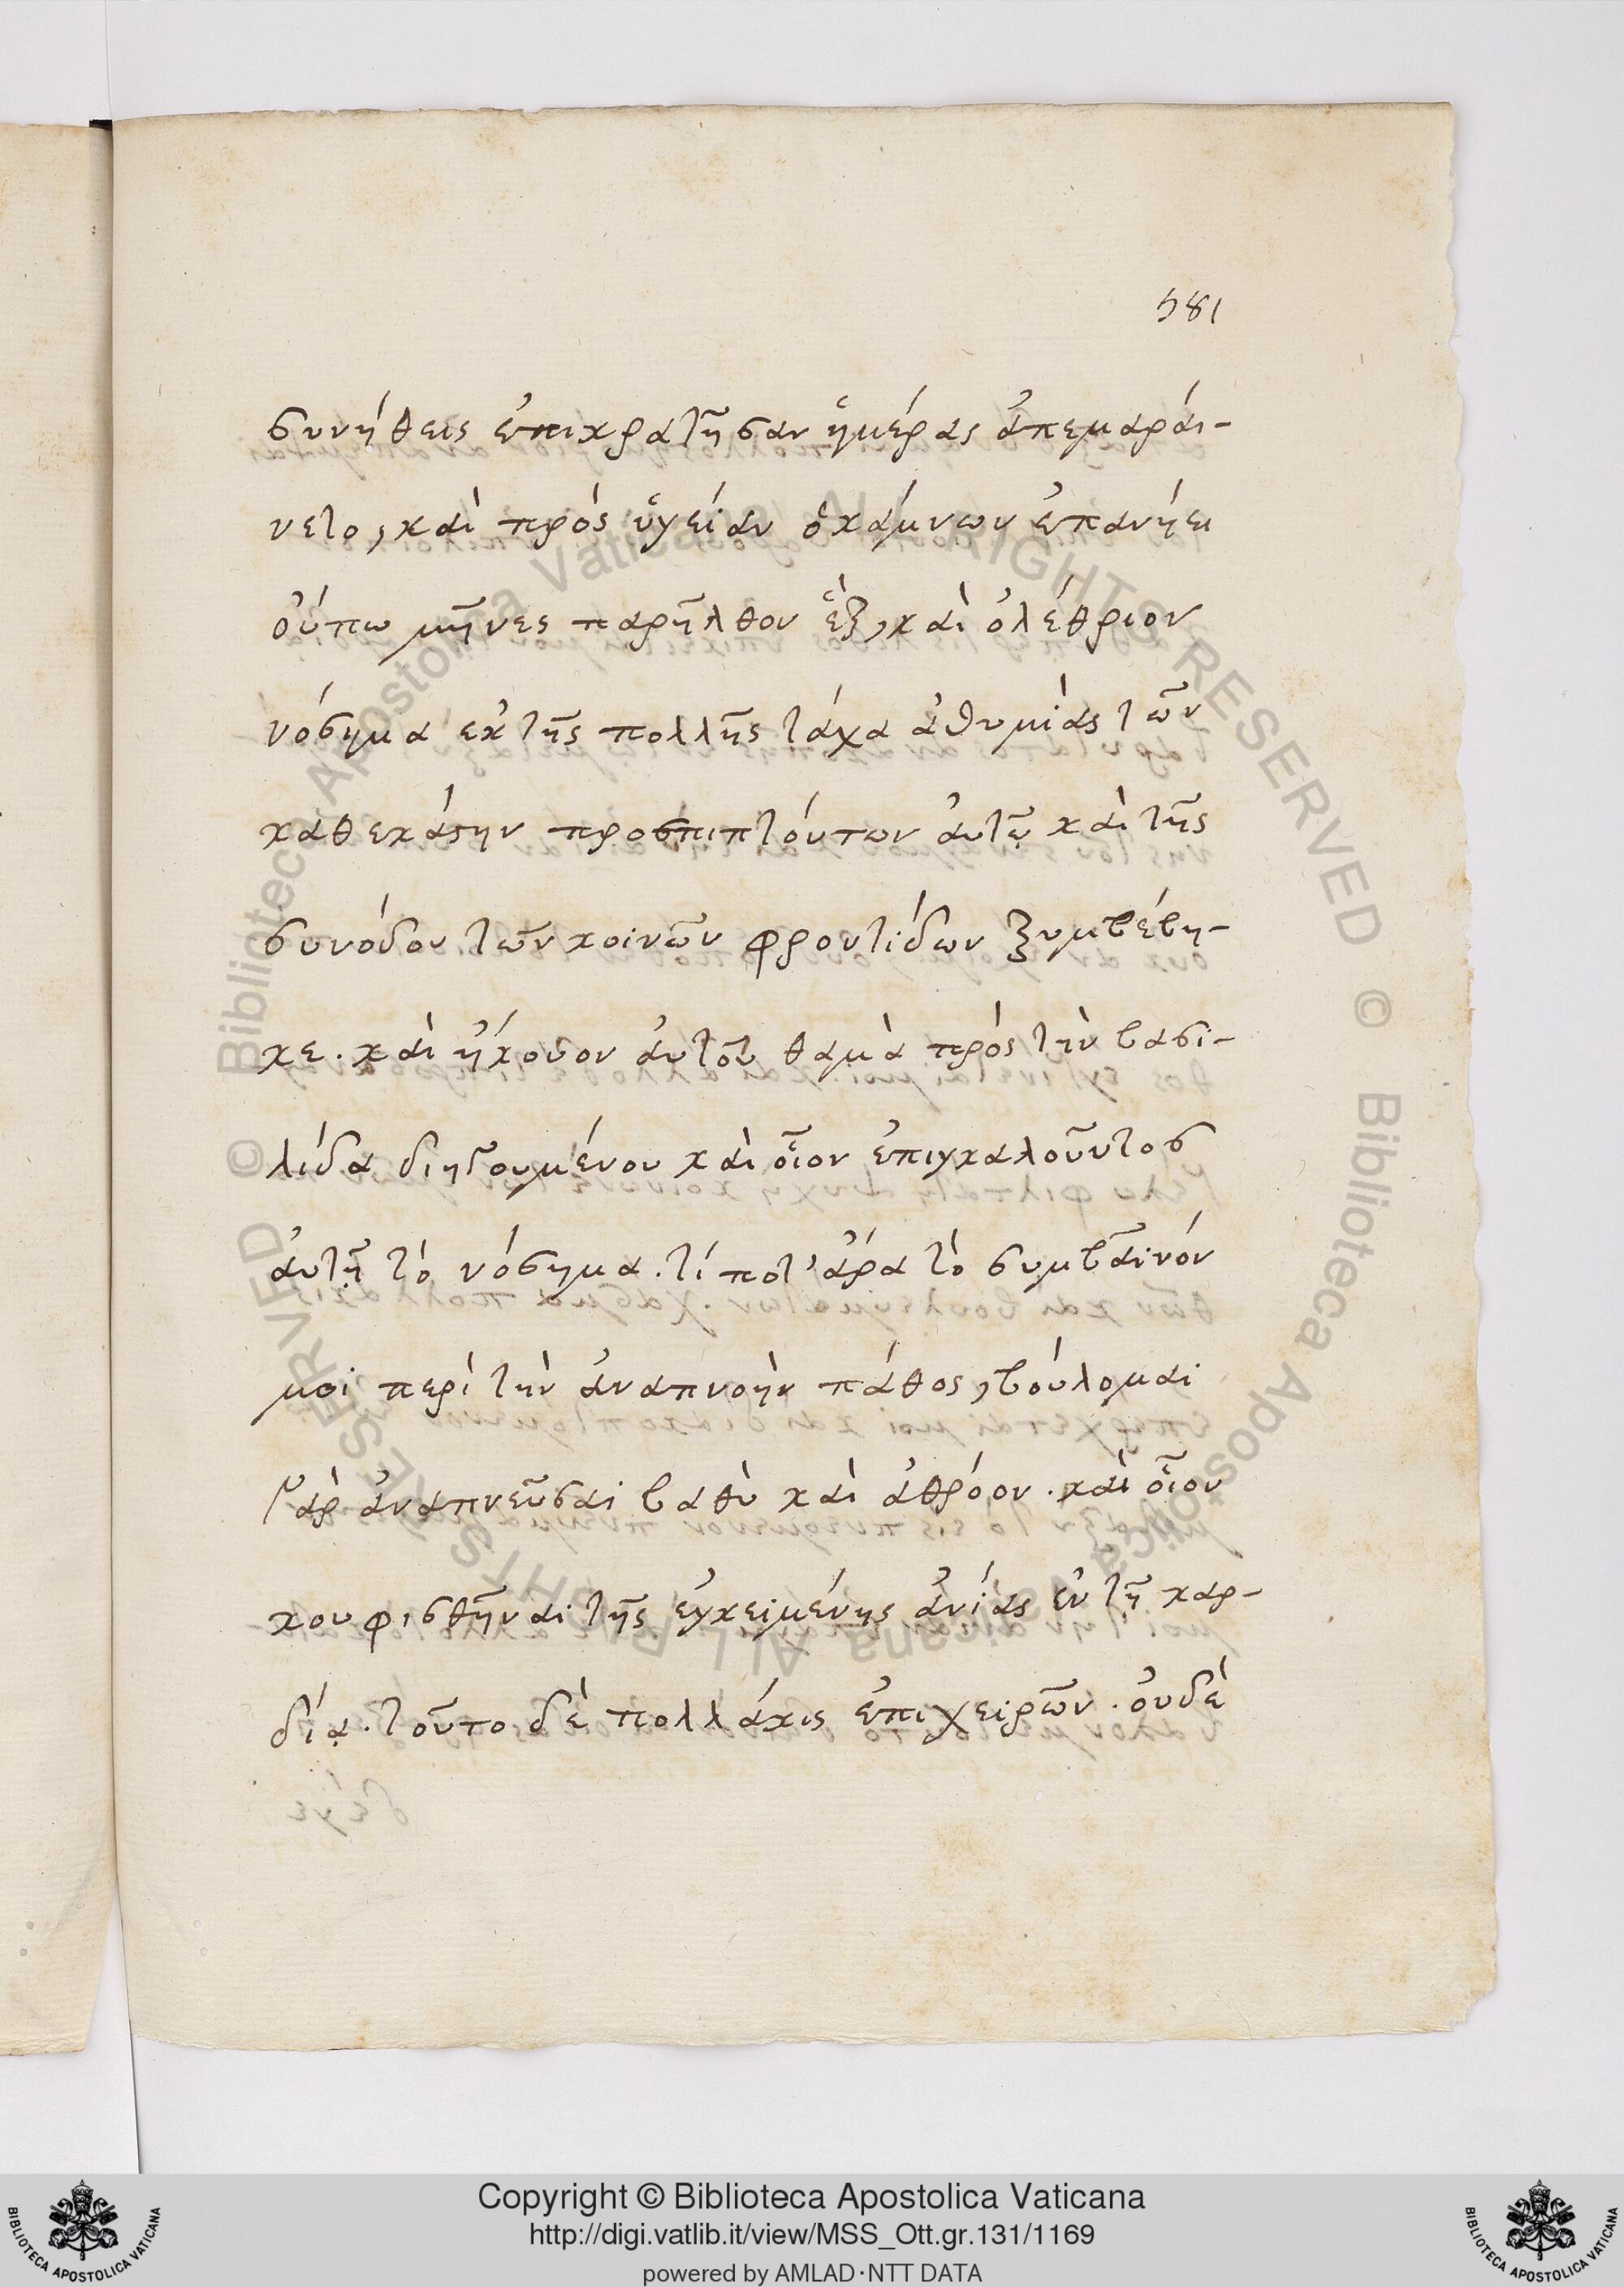 581
συνήθεις ἐπικρατῆσαν ἡμέρας ἀπεμαράι-
νετο, καὶ πρὸς ὑγείαν ὁ κάμνων ἐπανήει
ὀύπω μῆνες παρῆλθον ἓξ, καὶ ὀλέθριον
νόσημα ἐκ τῆς πολλῆς τάχα ἀθυμίας τῶν
καθεκάστην προσπιπτόντων ἀυτῷ καὶ τῆς
συνόδου τῶν κοινῶν φροντίδων ξυμβέβη-
κε. καὶ ἤκουον ἀυτοῦ θαμὰ πρὸς τὴν βασι-
λίδα διηγουμένου καὶ οἷον ἐπιγκαλοῦντος
ἀυτῇ τὸ νόσημα. τί ποτ' ἄρα τὸ συμβαῖνόν
μοι περὶ τὴν ἀναπνοὴν πάθος, βούλομαι
γὰρ ἀναπνεῦσαι βαθὺ καὶ ἀθρόον. καὶ οἷον
κουφισθῆναι τῆς ἐγκειμένης ἀνίας ἐν τῇ καρ-
δίᾳ. τοῦτο δὲ πολλάκις ἐπιχειρῶν. ὀυδὲ
Copyright © Biblioteca Apostolica Vaticana
http://digi.vatlib.it/view/MSS_Ott.gr.131/1169
powered by AMLAD·NTT DATA
BIBLIOTECA APOSTOLICA VATICANA
BIBLIOTECA APOSTOLICA VATICANA
© Biblioteca Apostolica Vaticana ALL RIGHTS RESERVED © Biblioteca Apostolica Vaticana ALL RIGHTS RESERVED